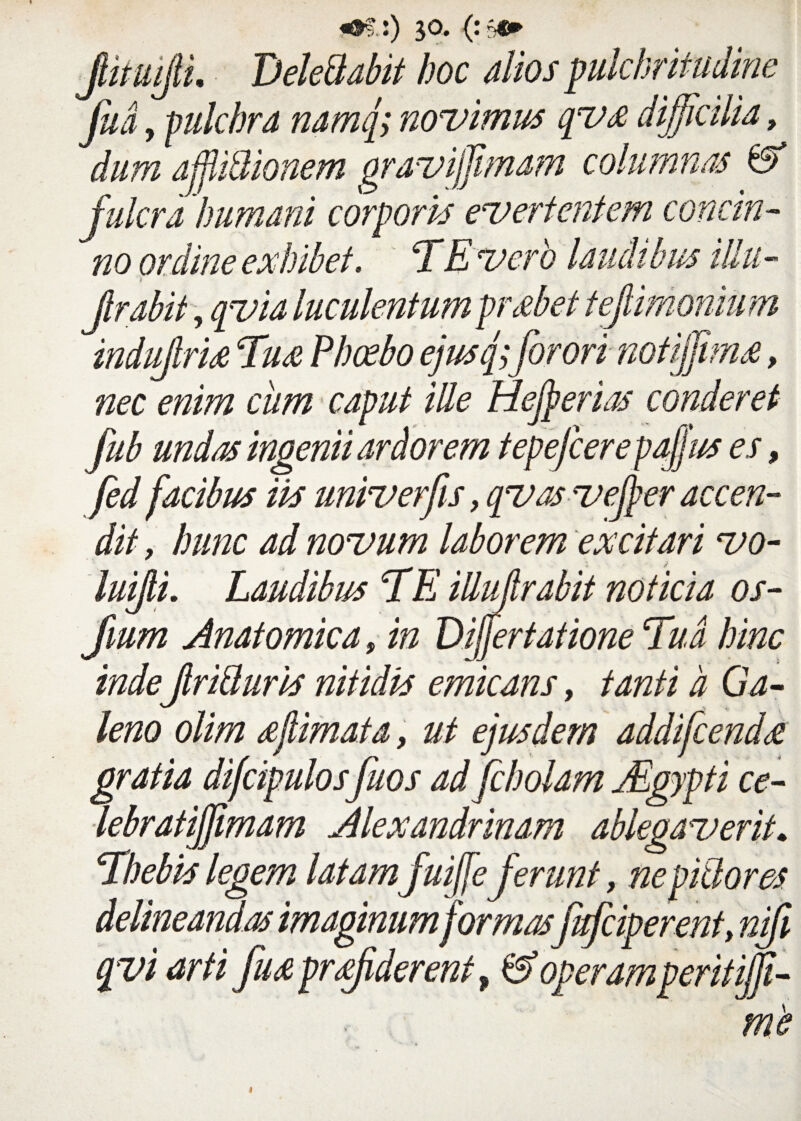 :) 30. (:
ſtituiſti. Delectabit hoc alios pulchritudine
ſuâ, pulchra namq; novimus qvæ difficilia,
dum afflictionem graviſſimam columnas &
fulcra humani corporis evertentem concin-
no ordine exhibet. TE verò laudibus illu-
ſtrabit, qvia luculentum præbet teſtimonium
induſtriæ Tuæ Phœbo ejusq; ſorori notiſſimæ,
nec enim cùm caput ille Heſperias conderet
ſub undas ingenii ardorem tepeſcere paſſus es,
ſed facibus iis univerſis, qvas veſper accen-
dit, hunc ad novum laborem excitari vo-
luiſti. Laudibus TE illuſtrabit noticia os-
ſium Anatomica, in Diſſertatione Tuâ hinc
inde ſtricturis nitidis emicans, tanti à Ga-
leno olim æſtimata, ut ejusdem addiſcendæ
gratia diſcipulos ſuos ad ſcholam Ægypti ce-
lebratiſſimam Alexandrinam ablegaverit.
Thebis legem latam fuiſſe ferunt, ne pictores
delineandas imaginum formas ſuſciperent, niſi
qvi arti ſuæ præſiderent, & operam peritiſſi-
mè